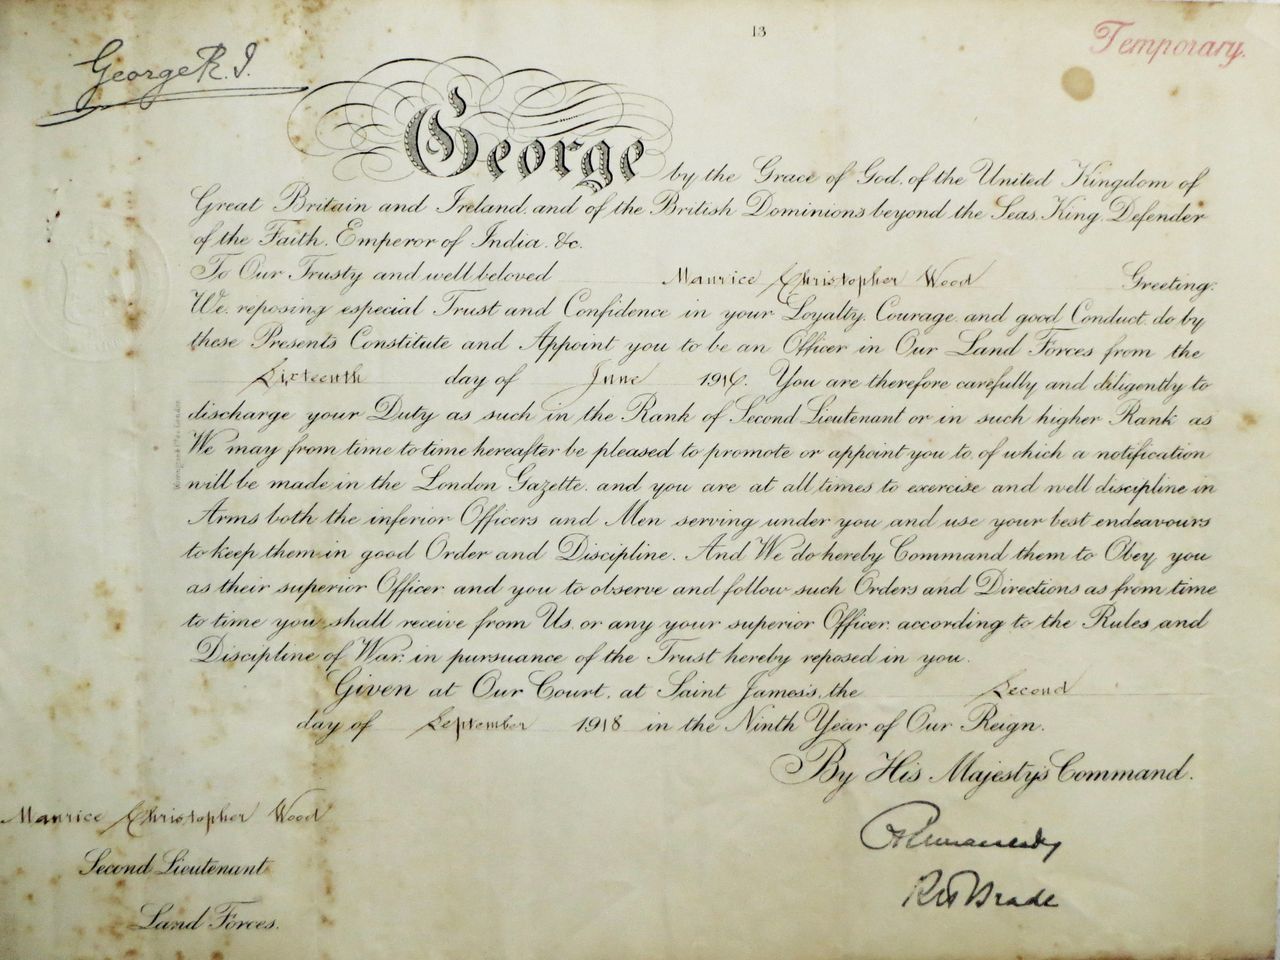 13
Temporary.
George R. I.
George by the Grace of God, of the United Kingdom of
Great Britain and Ireland, and of the British Dominions beyond the Seas, King, Defender
of the Faith, Emperor of India, &c.
To Our Trusty and well beloved Maurice Christopher Wood Greeting:
We, reposing especial Trust and Confidence in your Loyalty, Courage, and good Conduct, do by
these Presents Constitute and Appoint you to be an Officer in Our Land Forces from the
Sixteenth day of June 1916. You are therefore carefully and diligently to
discharge your Duty as such in the Rank of Second Lieutenant or in such higher Rank as
We may from time to time hereafter be pleased to promote or appoint you to, of which a notification
will be made in the London Gazette, and you are at all times to exercise and well discipline in
Arms both the inferior Officers and Men serving under you and use your best endeavours
to keep them in good Order and Discipline. And We do hereby Command them to Obey you
as their superior Officer, and you to observe and follow such Orders and Directions as from time
to time you shall receive from Us, or any your superior Officer, according to the Rules and
Discipline of War, in pursuance of the Trust hereby reposed in you.
Given at Our Court, at Saint James's, the Second
day of September 1918 in the Ninth Year of Our Reign.
By His Majesty's Command.
Maurice Christopher Wood
Second Lieutenant
Land Forces.
R H Brade